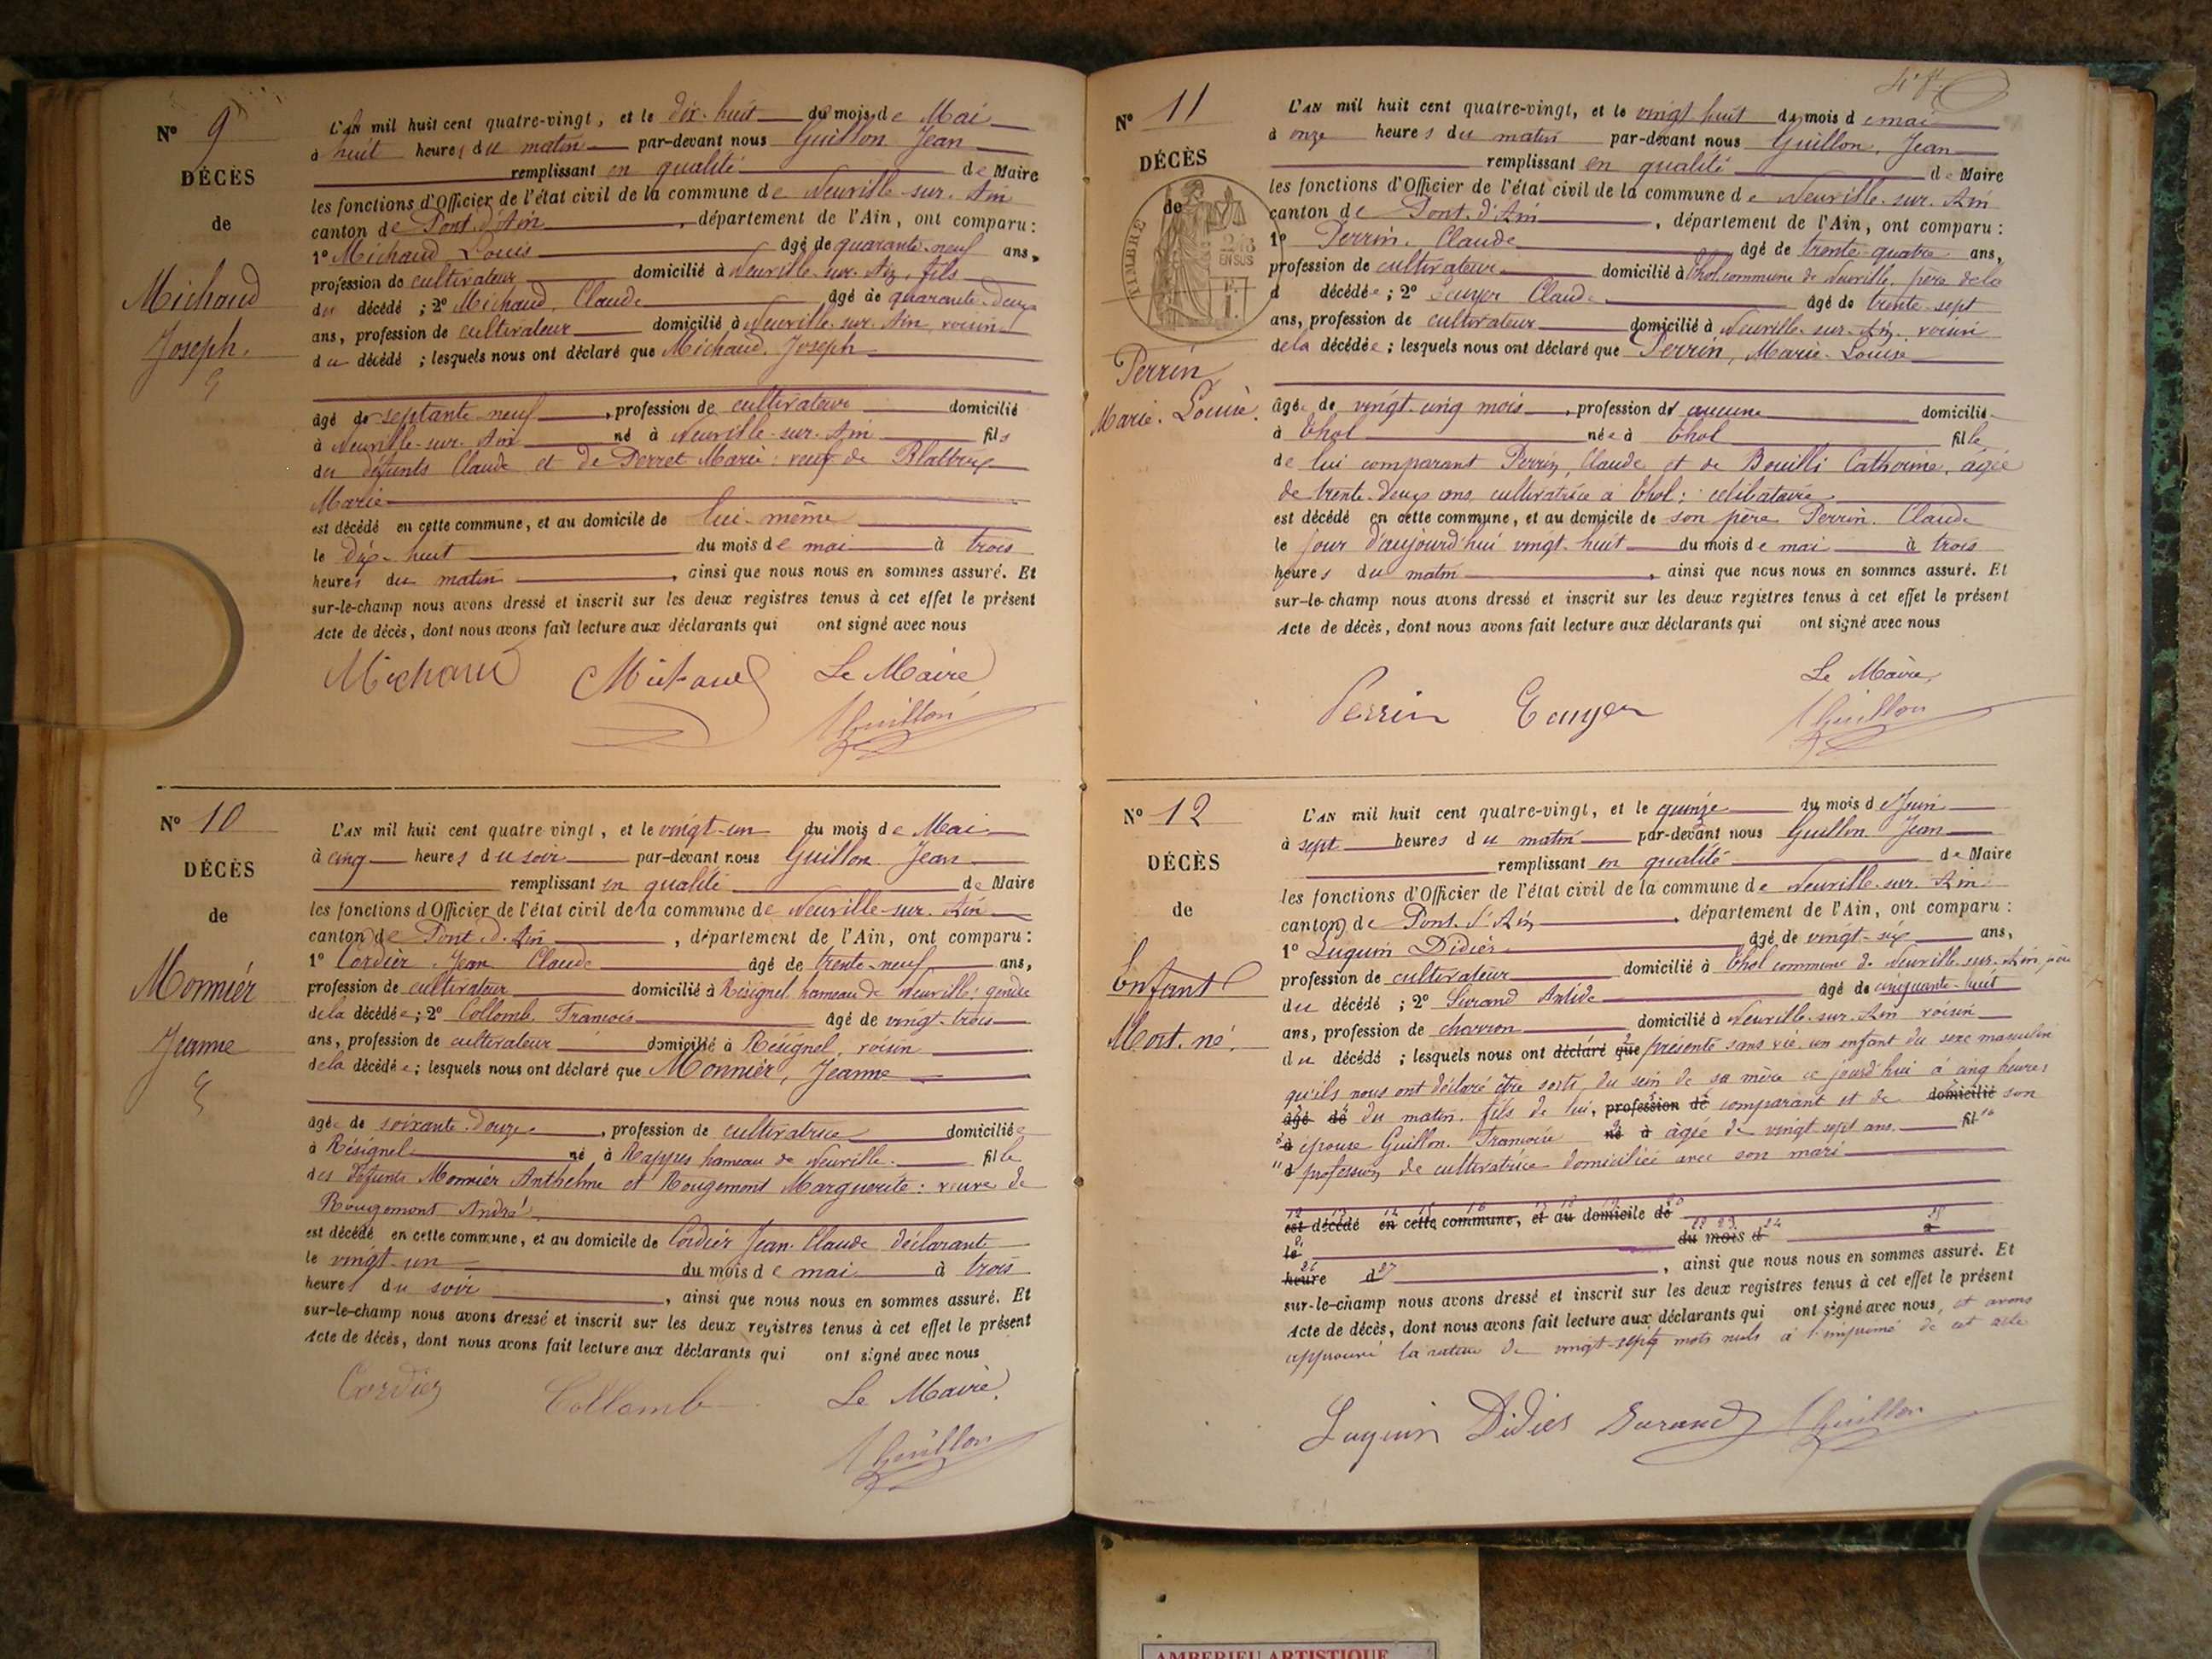 Nº 9
DÉCÈS
de
Michaud
Joseph.
L'AN mil huit cent quatre-vingt, et le dix-huit du mois de Mai
à huit heures du matin par-devant nous Guillon Jean
remplissant en qualité de Maire
les fonctions d'Officier de l'état civil de la commune de Neuville-sur-Ain
canton de Pont d'Ain, département de l'Ain, ont comparu :
1º Michaud Louis âgé de quarante-neuf ans,
profession de cultivateur domicilié à Neuville-sur-Ain, fils
du décédé ; 2º Michaud Claude âgé de quarante-deux
ans, profession de cultivateur domicilié à Neuville-sur-Ain, voisin
du décédé ; lesquels nous ont déclaré que Michaud, Joseph
âgé de septante-neuf, profession de cultivateur domicilié
à Neuville-sur-Ain né à Neuville-sur-Ain fils
des défunts Claude et de Perret Marie : veuf de
Marie
est décédé en cette commune, et au domicile de lui-même
le dix-huit du mois de mai à trois
heures du matin, ainsi que nous nous en sommes assuré. Et
sur-le-champ nous avons dressé et inscrit sur les deux registres tenus à cet effet le présent
Acte de décès, dont nous avons fait lecture aux déclarants qui ont signé avec nous
Michaud Michaud Le Maire
Guillon
Nº 10
DÉCÈS
de
Monnier
Jeanne
L'AN mil huit cent quatre-vingt, et le vingt-un du mois de Mai
à cinq heures du soir par-devant nous Guillon Jean
remplissant en qualité de Maire
les fonctions d'Officier de l'état civil de la commune de Neuville-sur-Ain
canton de Pont d'Ain, département de l'Ain, ont comparu :
1º Cordier Jean Claude âgé de trente-neuf ans,
profession de cultivateur domicilié à Résignel hameau de Neuville : gendre
de la décédée ; 2º Collomb François âgé de vingt-trois
ans, profession de cultivateur domicilié à Résignel, voisin
de la décédée ; lesquels nous ont déclaré que Monnier, Jeanne
âgée de soixante-douze, profession de cultivatrice domiciliée
à Résignel né à Rappes hameau de Neuville. fille
des défunts Monnier Anthelme et Rougemont Marguerite : veuve de
Rougemont André
est décédé en cette commune, et au domicile de Cordier Jean-Claude déclarant
le vingt-un du mois de mai à trois
heures du soir, ainsi que nous nous en sommes assuré. Et
sur-le-champ nous avons dressé et inscrit sur les deux registres tenus à cet effet le présent
Acte de décès, dont nous avons fait lecture aux déclarants qui ont signé avec nous
Cordier Collomb Le Maire.
Guillon
Nº 11
DÉCÈS
de
TIMBRE
EN SUS
Perrin
Marie-Louise.
L'AN mil huit cent quatre-vingt, et le vingt huit du mois de mai
à onze heures du matin par-devant nous Guillon, Jean
remplissant en qualité de Maire
les fonctions d'Officier de l'état civil de la commune de Neuville-sur-Ain
canton de Pont-d'Ain, département de l'Ain, ont comparu :
1º Perrin, Claude âgé de trente-quatre ans,
profession de cultivateur domicilié à Thol, commune de Neuville, père de la
d décédée ; 2º Claude âgé de trente-sept
ans, profession de cultivateur domicilié à Neuville-sur-Ain, voisin
de la décédée ; lesquels nous ont déclaré que Perrin, Marie-Louise
âgée de vingt-cinq mois, profession d' aucune domicilié
à Thol née à Thol fille
de lui comparant Perrin, Claude et de Bouilli Catherine, âgée
de trente-deux ans, cultivatrice à Thol : célibataire
est décédé en cette commune, et au domicile de son père Perrin, Claude
le jour d'aujourd'hui vingt-huit du mois de mai à trois
heures du matin, ainsi que nous nous en sommes assuré. Et
sur-le-champ nous avons dressé et inscrit sur les deux registres tenus à cet effet le présent
Acte de décès, dont nous avons fait lecture aux déclarants qui ont signé avec nous
Le Maire,
Perrin Guillon
Nº 12
DÉCÈS
de
Enfant
Mort-né.
L'AN mil huit cent quatre-vingt, et le quinze du mois de Juin
à sept heures du matin par-devant nous Guillon Jean
remplissant en qualité de Maire
les fonctions d'Officier de l'état civil de la commune de Neuville-sur-Ain
canton de Pont-d'Ain, département de l'Ain, ont comparu :
1º Luquin Didier âgé de vingt-six ans,
profession de cultivateur domicilié à Thol commune de Neuville-sur-Ain, père
du décédé ; 2º Durand Antide âgé de cinquante-huit
ans, profession de charron domicilié à Neuville-sur-Ain voisin
du décédé ; lesquels nous ont déclaré que présenté sans vie un enfant du sexe masculin
qu'ils nous ont déclaré être sorti du sein de sa mère ce jourd'hui à cinq heures
âgé de du matin. fils de lui, profession de comparant et de domicilié son
à épouse Guillon, Françoise né à âgée de vingt sept ans. fil
d profession de cultivatrice domiciliée avec son mari
est décédé en cette commune, et au domicile de
le du mois d à
heure d, ainsi que nous nous en sommes assuré. Et
sur-le-champ nous avons dressé et inscrit sur les deux registres tenus à cet effet le présent
Acte de décès, dont nous avons fait lecture aux déclarants qui ont signé avec nous, et avons
approuvé la rature de vingt-sept mots nuls à l'imprimé de cet acte
Luquin Didier Durand Guillon
AMBERIEU ARTISTIQUE